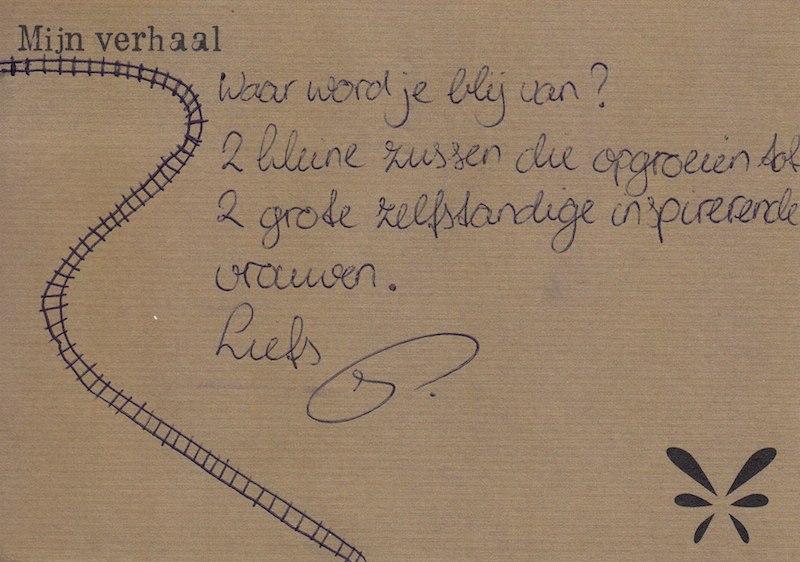 Mijn verhaal
Waar word je blij van?
2 kleine zussen die opgroeien tot
2 grote zelfstandige inspirerende
vrouwen.
Liefs